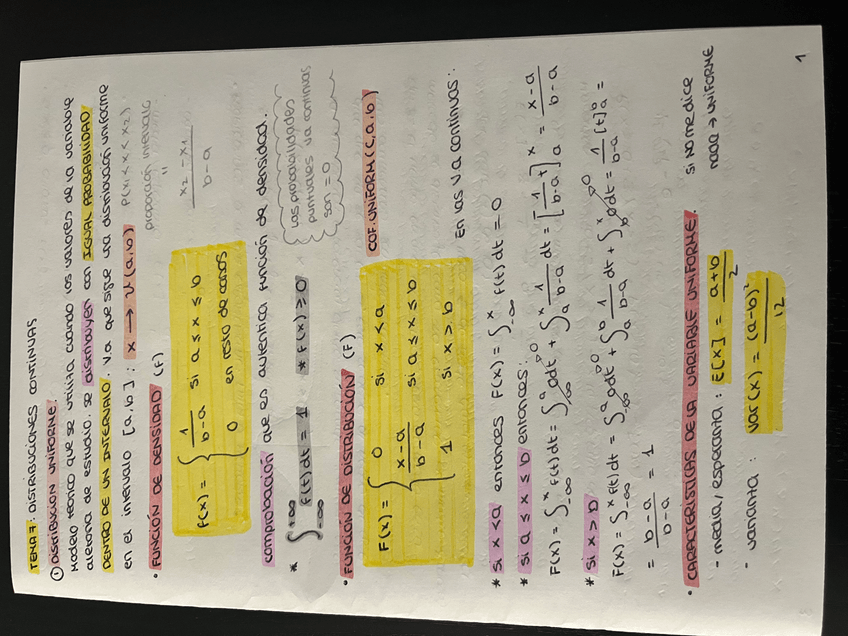 TEMA 7: DISTRIBUCIONES CONTINUAS
① DISTRIBUCIÓN UNIFORME:
Modelo teórico que se utiliza cuando los valores de la variable
aleatoria de estudio se distribuyen con IGUAL PROBABILIDAD
DENTRO DE UN INTERVALO. Va que sigue una distribución uniforme
en el intervalo [a,b]: x → U(a,b) P(x1 < x < x2)
proporción intervalo
"
x2 - x1 / b-a
• FUNCIÓN DE DENSIDAD (F)
f(x) = { 1/b-a si a ≤ x ≤ b
0 en resto de casos
comprobación que es autentica función de densidad.
* ∫_{-∞}^{+∞} f(t)dt = 1 * f(x) ≥ 0
Las probabilidades
puntuales va continuas
son = 0
• FUNCIÓN DE DISTRIBUCIÓN (F)
CDF.UNIFORM(C,a,b)
F(x) = { 0 si x < a
x-a / b-a si a ≤ x ≤ b
1 si x > b
En las va continuas:
* si x<a entonces F(x) = ∫_{-∞}^{x} f(t)dt = 0
* si a ≤ x ≤ b entonces:
F(x) = ∫_{-∞}^{x} f(t)dt = ∫_{-∞}^{a} 0dt + ∫_{a}^{x} 1/b-a dt = [1/b-a t]_{a}^{x} = x-a / b-a
* si x>b
F(x) = ∫_{-∞}^{x} f(t)dt = ∫_{-∞}^{a} 0dt + ∫_{a}^{b} 1/b-a dt + ∫_{b}^{x} 0dt = 1/b-a [t]_{a}^{b} =
= b-a / b-a = 1
• CARACTERÍSTICAS DE LA VARIABLE UNIFORME. si no me dice
nada → UNIFORME
- media/esperanza: E[x] = a+b / 2
- varianza: Var(x) = (a-b)² / 12
1